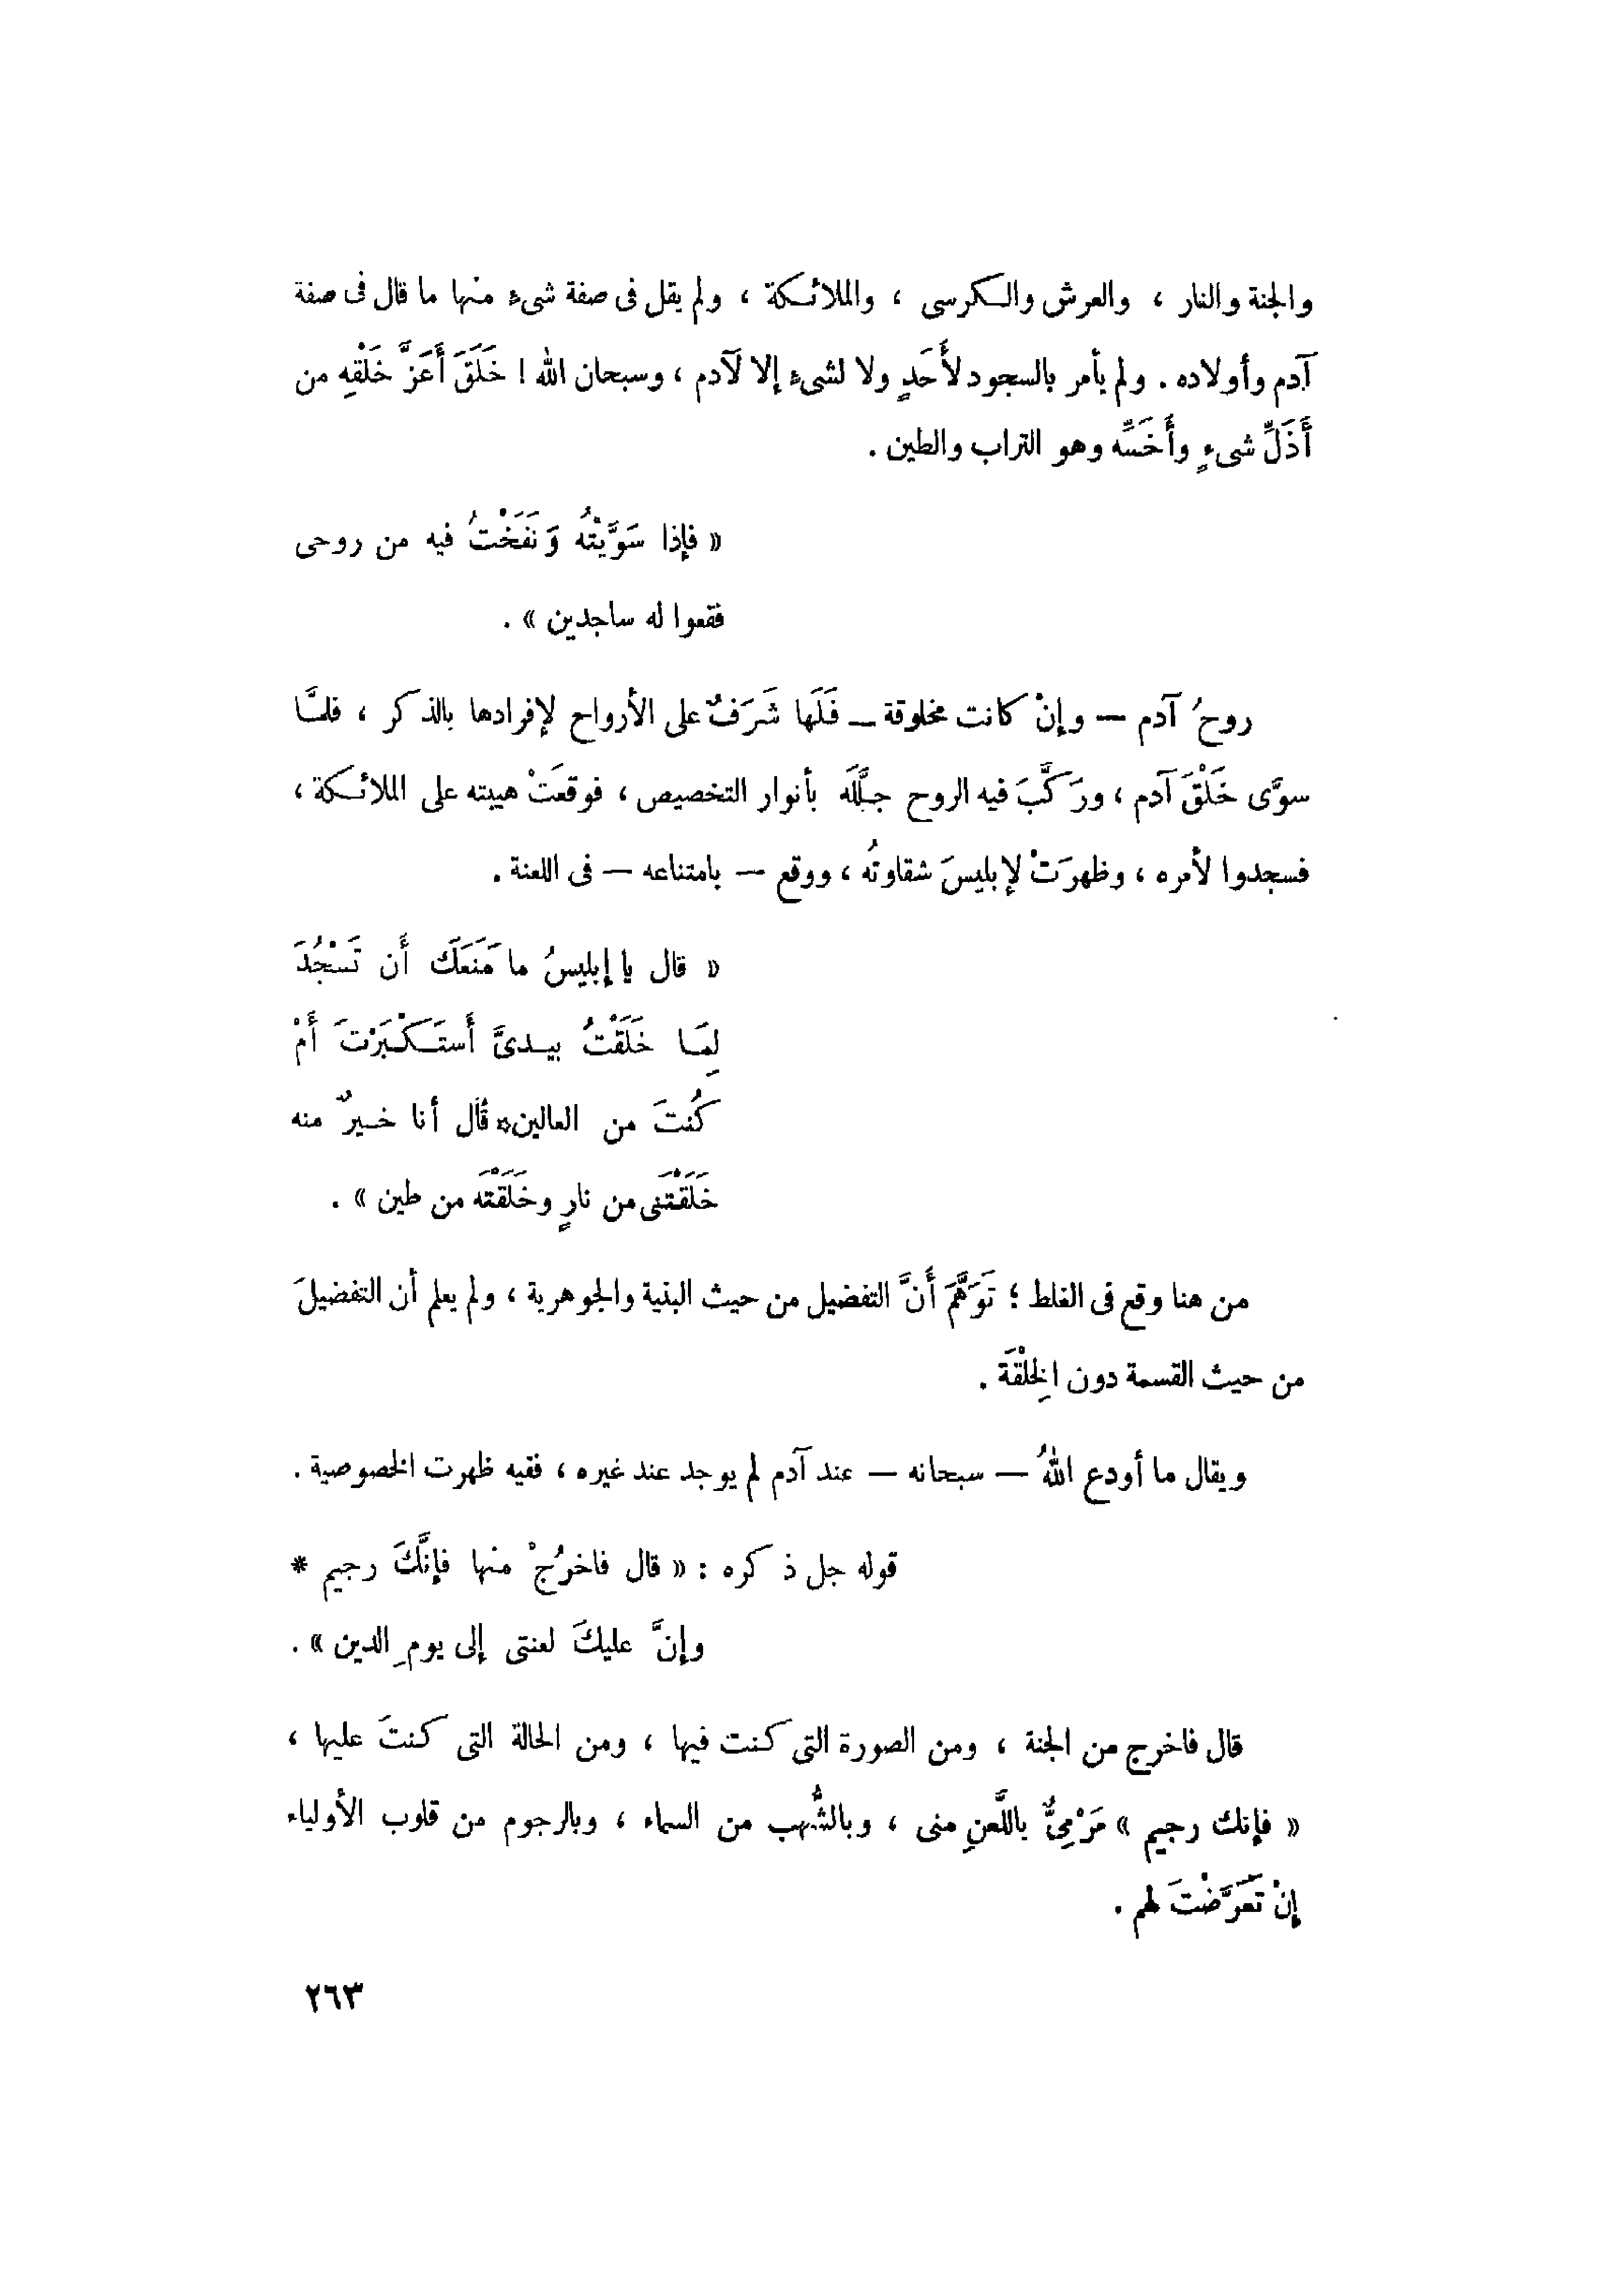 والجنة والنار ، والعرش والكرسى ، والملائكة ، ولم يقل فى صفة شىء منها ما قال فى صفة
آدم وأولاده . ولم يأمر بالسجود لأَحَدٍ ولا لشىء إلا لآدم ، وسبحان الله ! خَلَقَ أَعَزَّ خَلْقِه من
أَذَلِّ شىءٍ وأَخَسِّه وهو التراب والطين .
« فإذا سَوَّيْتُه وَنَفَخْتُ فيه من روحى
فقعوا له ساجدين » .
روحُ آدم — وإنْ كانت مخلوقة — فَلَها شَرَفٌ على الأرواح لإفرادها بالذكر ، فلمَّا
سوَّى خَلْقَ آدم ، ورَكَّبَ فيه الروح جلَّلَه بأنوار التخصيص ، فوقعَتْ هيبته على الملائكة ،
فسجدوا لأمره ، وظهرَتْ لإبليسَ شقاوتُه ، ووقع — بامتناعه — فى اللعنة .
« قال يا إبليسُ ما مَنَعَكَ أَن تَسْجُدَ
لِمَا خَلَقْتُ بيدىَّ أَستَكْبَرْتَ أَمْ
كُنتَ من العالين * قال أنا خيرٌ منه
خَلَقْتَنى من نارٍ وخَلَقْتَه من طين » .
من هنا وقع فى الغلط ؛ تَوَهَّمَ أَنَّ التفضيل من حيث البنية والجوهرية ، ولم يعلم أن التفضيلَ
من حيث القسمة دون الخِلْقَة .
ويقال ما أودع اللهُ — سبحانه — عند آدم لم يوجد عند غيره ، ففيه ظهرت الخصوصية .
قوله جل ذكره : « قال فاخرُجْ منها فإنَّكَ رجيم *
وإنَّ عليكَ لعنتى إلى يومِ الدين » .
قال فاخرج من الجنة ، ومن الصورة التى كنت فيها ، ومن الحالة التى كنتَ عليها ،
« فإنك رجيم » مَرْمِىٌّ باللَّعنِ منى ، وبالشُّهب من السماء ، وبالرجوم من قلوب الأولياء
إنْ تَعَرَّضْتَ لهم .
٢٦٣